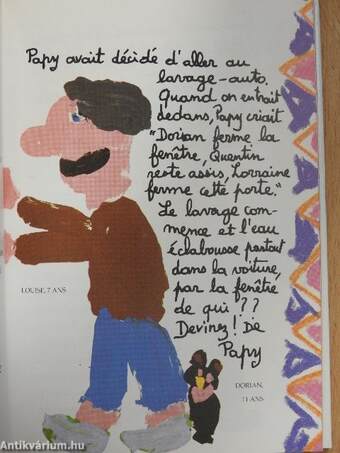 Papy avait décidé d'aller au
lavage-auto.
Quand on entrait
dedans, Papy criait
"Dorian ferme la
fenêtre, Quentin
reste assis, Lorraine
ferme cette porte."
Le lavage com-
mence et l'eau
éclabousse partout
dans la voiture,
par la fenêtre
de qui ??
Devinez! De
Papy
LOUISE, 7 ANS
DORIAN,
11 ANS
Antikvárium.hu